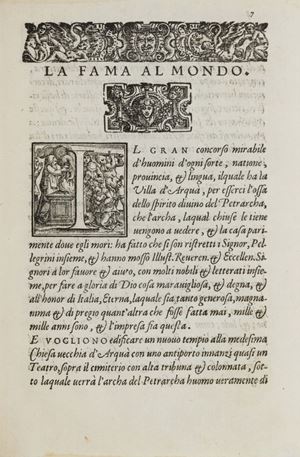 7
LA FAMA AL MONDO.
IL GRAN concorso mirabile
d'huomini d'ogni sorte, natione,
provincia, & lingua, ilquale ha la
Villa d'Arquà, per esserci l'ossa
dello spirito divino del Petrarcha,
che l'archa, laqual chiuse le tiene
vengono a vedere, & la casa pari
mente dove egli morì: ha fatto che si son ristretti i Signor, Pel
legrini insieme, & hanno mosso Illust. Reveren. & Eccellen. Si
gnori à lor favore & aiuto, con molti nobili & letterati insie
me, per fare a gloria di Dio cosa maravigliosa, & degna, &
all'honor di Italia, Eterna, laquale sia tanto generosa, magna
nima & di pregio quant'altra che fosse fatta mai, mille &
mille anni sono, & l'impresa fia questa.
E VOGLIONO edificare un nuovo tempio alla medesima
Chiesa vecchia d'Arquà con uno antiporto innanzi quasi un
Teatro, sopra il cimiterio con alta tribuna & colonnata, sot
to laquale verrà l'archa del Petrarcha huomo veramente di